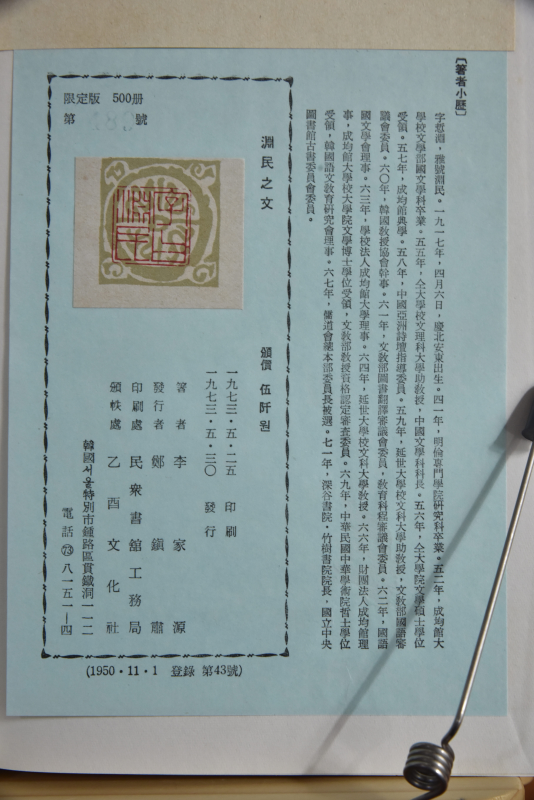 〔著者小歷〕
字悳淵，雅號淵民。一九一七年，四月六日，慶北安東出生。四一年，明倫專門學院硏究科卒業。五二年，成均館大
學校文學部國文學科卒業。五五年，仝大學校文理科大學助敎授，中國文學科科長。五六年，仝大學院文學碩士學位
受領。五七年，成均館典學。五八年，中國亞洲詩壇指導委員。五九年，延世大學校文科大學助敎授，文敎部國語審
議會委員。六〇年，韓國敎授協會幹事。六一年，文敎部圖書飜譯審議會委員，敎育科程審議會委員。六二年，國語
國文學會理事。六三年，學校法人成均館大學理事。六四年，延世大學校文科大學敎授。六六年，財團法人成均館理
事，成均館大學校大學院文學博士學位受領，文敎部敎授資格認定審査委員。六九年，中華民國中華學術院哲士學位
受領，韓國語文敎育硏究會理事。六七年，儒道會總本部委員長被選。七一年，深谷書院・竹樹書院院長，國立中央
圖書館古書委員會委員。
淵民之文
頒價 伍阡원
限定版 500册
第 號
一九七三・五・二五 印刷
一九七三・五・三〇 發行
著者 李家源
發行者 鄭鎭肅
印刷處 民衆書館工務局
頒帙處 乙酉文化社
韓國서울特別市鍾路區貫鐵洞一一二
電話 73 八一五一─四
(1950・11・1 登錄 第43號)